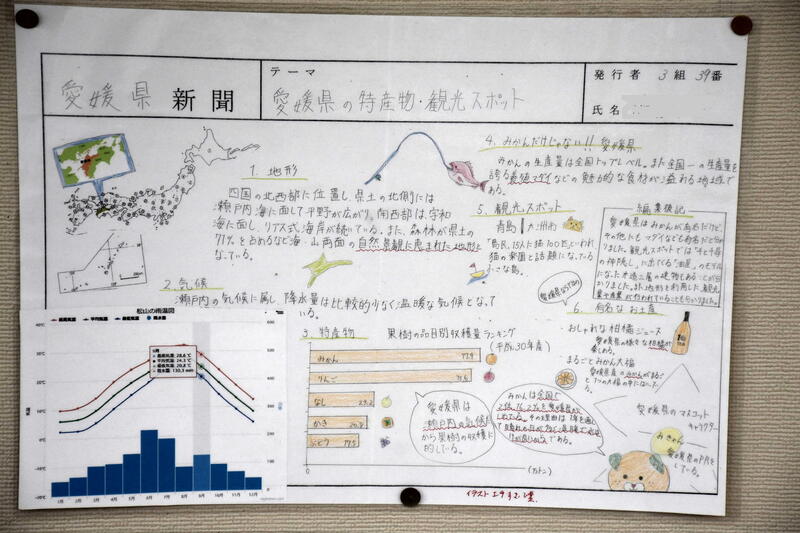 愛媛県 新聞
テーマ
愛媛県の特産物・観光スポット
発行者 3組 39番
氏名
1. 地形
四国の北西部に位置し、県土の北側には
瀬戸内海に面して平野が広がり、南西部は宇和
海に面し、リアス式海岸が続いている。また、森林が県土の
71%を占めるなど海・山両面の自然景観に恵まれた地形と
なっている。
2. 気候
瀬戸内の気候に属し、降水量は比較的少なく温暖な気候となって
いる。
松山の雨温図
3. 特産物 果樹の品目別収穫量ランキング
(平成30年産)
みかん
りんご
なし
かき
ぶどう
(万トン)
愛媛県は
瀬戸内の気候
から果樹の収穫に
適している。
みかんは全国
4. みかんだけじゃない!! 愛媛県
みかんの生産量は全国トップレベル。また全国一の生産量を
誇る養殖マダイなどの魅力的な食材が溢れる地域で
ある。
5. 観光スポット
青島 大洲市
島民15人に猫100匹といわれ
猫の楽園と話題になっている
小さな島。
編集後記
愛媛県はみかんが有名だけど、
その他にもマダイなども有名だと分か
りました。観光スポットでは「千と千尋
の神隠し」に出てくる「油屋」のモデル
になった道後温泉の建物もあることが分
かりました。また地形を利用した観光
業や産業が行われていることも分かりました。
6. 有名なお土産
・おしゃれな柑橘ジュース
愛媛県の様々な柑橘が
楽しめる。
・まるごとみかん大福
愛媛県産のみかんがまるご
と1つ大福の中に
愛媛県のマスコット
キャラクター
みきゃん
愛媛県のPRを
している。